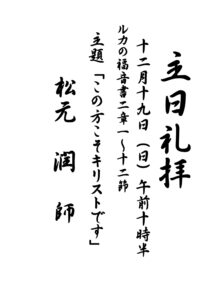 主日礼拝
十二月十九日（日）午前十時半
ルカの福音書二章一～十二節
主題「この方こそキリストです」
松元　潤　師